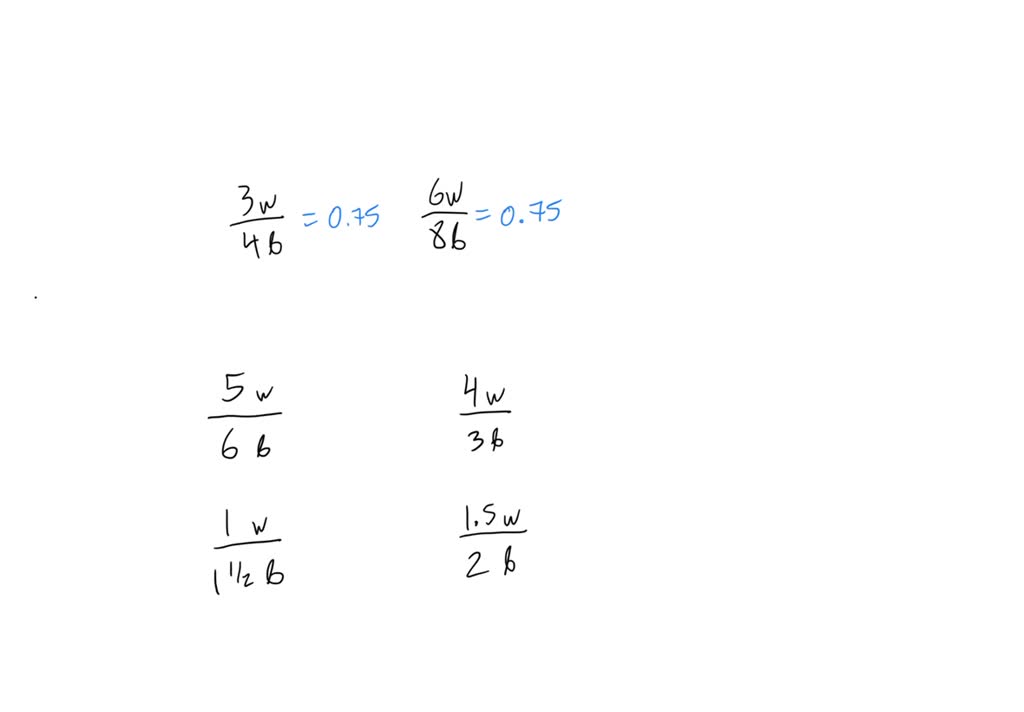 3w/4b = 0.75 6w/8b = 0.75
5w/6b 4w/3b
1w/1 1/2 b 1.5w/2b